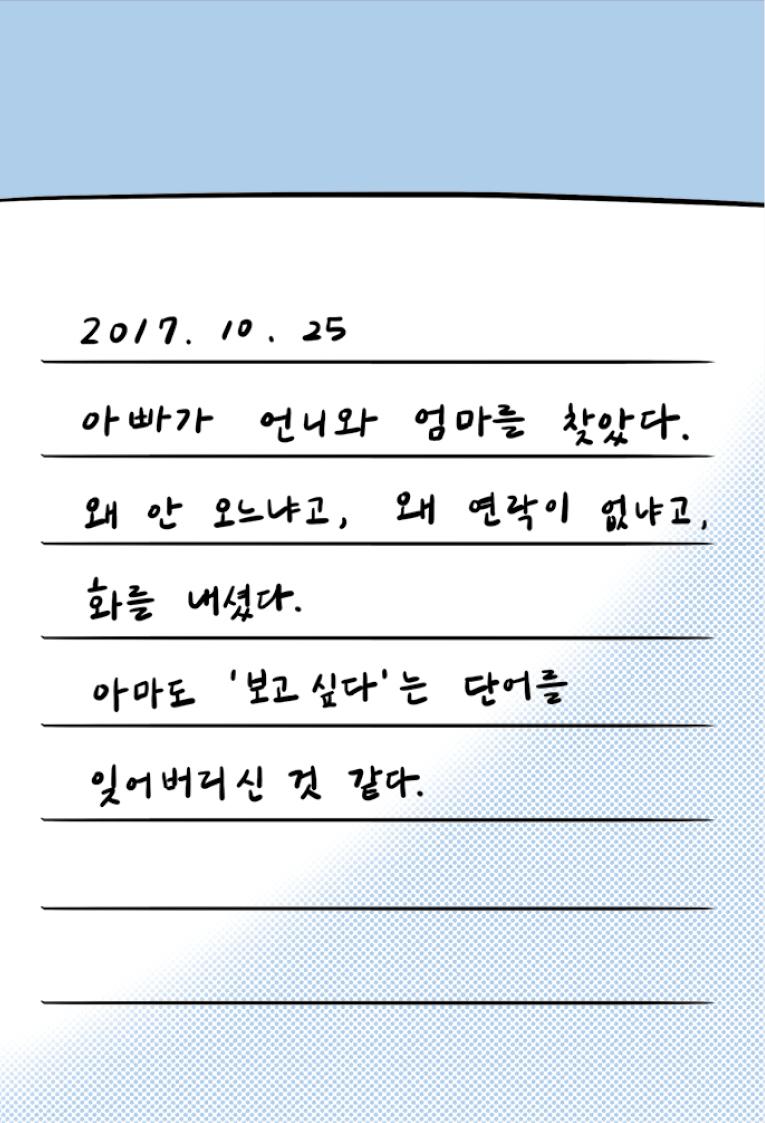 2017. 10. 25
아빠가 언니와 엄마를 찾았다.
왜 안 오느냐고, 왜 연락이 없냐고,
화를 내셨다.
아마도 '보고 싶다'는 단어를
잊어버리신 것 같다.